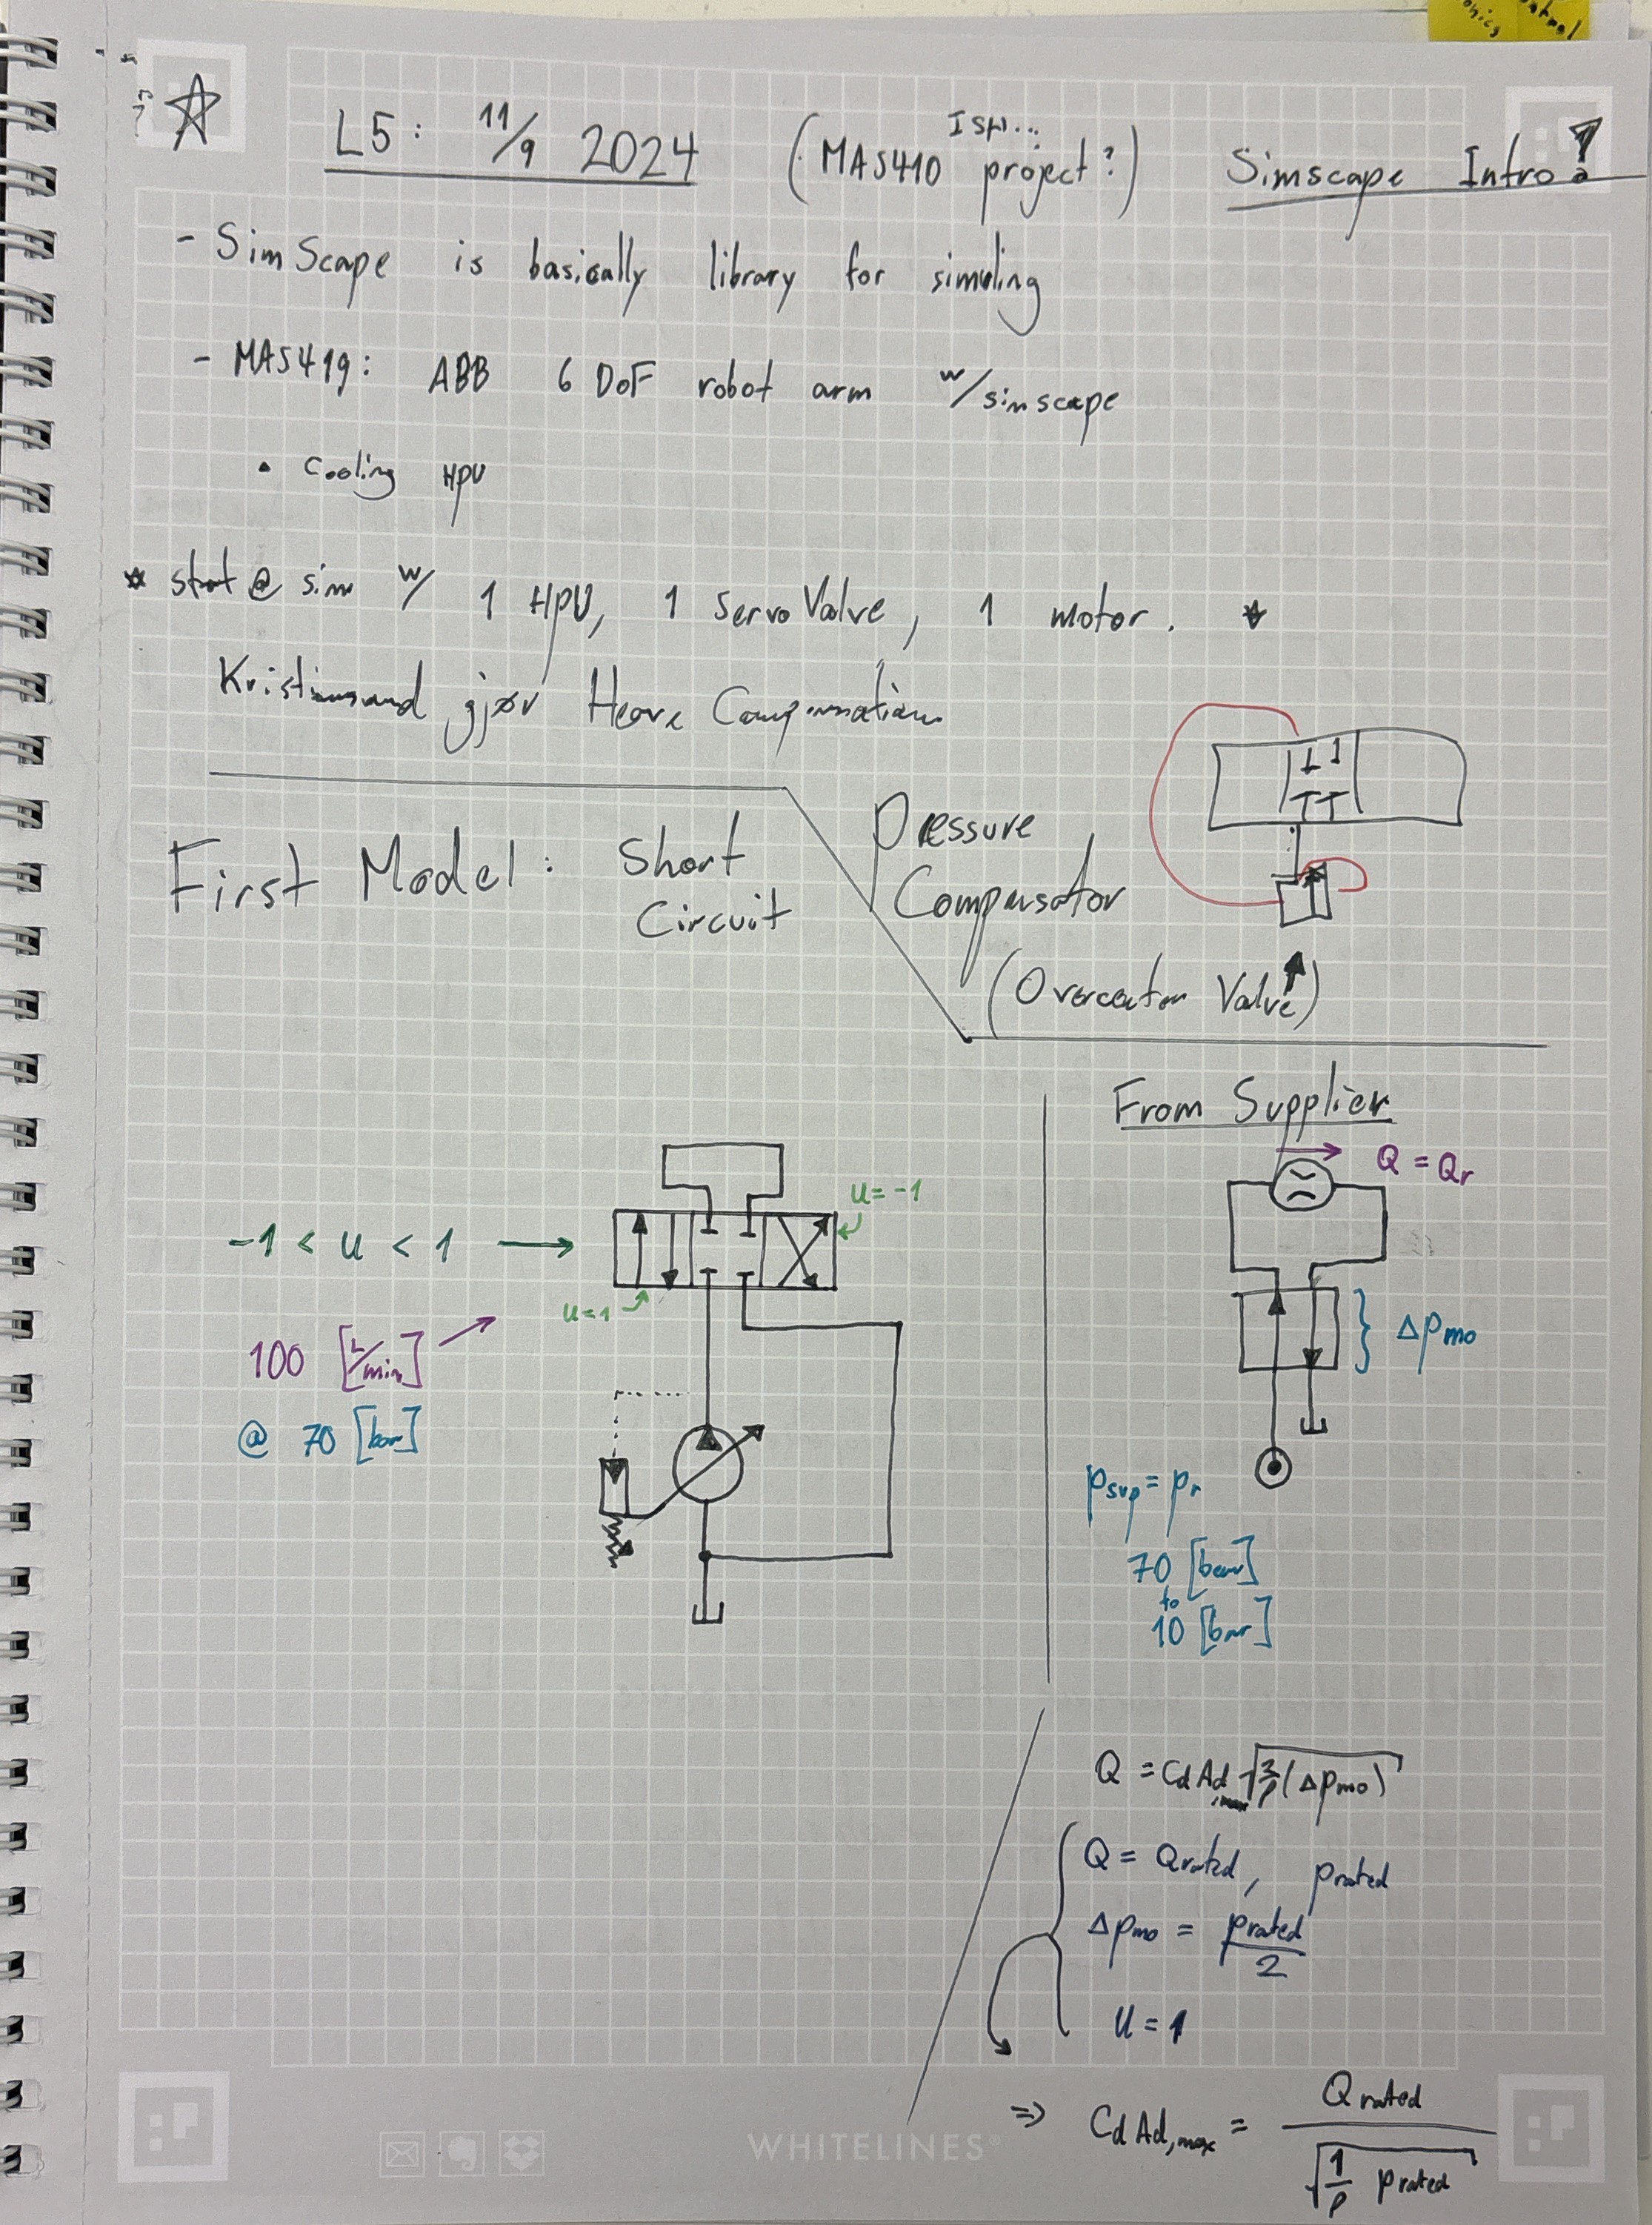 onics
ontrol
L5: 11/9 2024 (MAS410 project?) Simscape Intro!
ISH...
- SimScape is basically library for simuling
- MAS419: ABB 6 DoF robot arm w/simscape
• Cooling HPU
* start @ sim w/ 1 HPU, 1 servoValve, 1 motor. *
Kristiansand gjør Heave Compensation
First Model: Short Circuit
Pressure
Compensator
(Overcenter Valve)
From Supplier
Q = Qr
u=-1
-1 < u < 1
u=1
Δpmo
100 [L/min]
@ 70 [bar]
psup = pr
70 [bar]
to
10 [bar]
Q = Cd Ad,max √2/ρ (Δpmo)
Q = Qrated, prated
Δpmo = prated/2
u = 1
WHITELINES®
=> Cd Ad,max = Qrated / √1/ρ prated